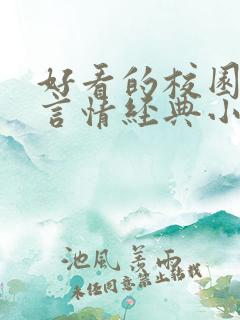 好看的校园
言情经典小
池风善雨
未经同意禁止转载